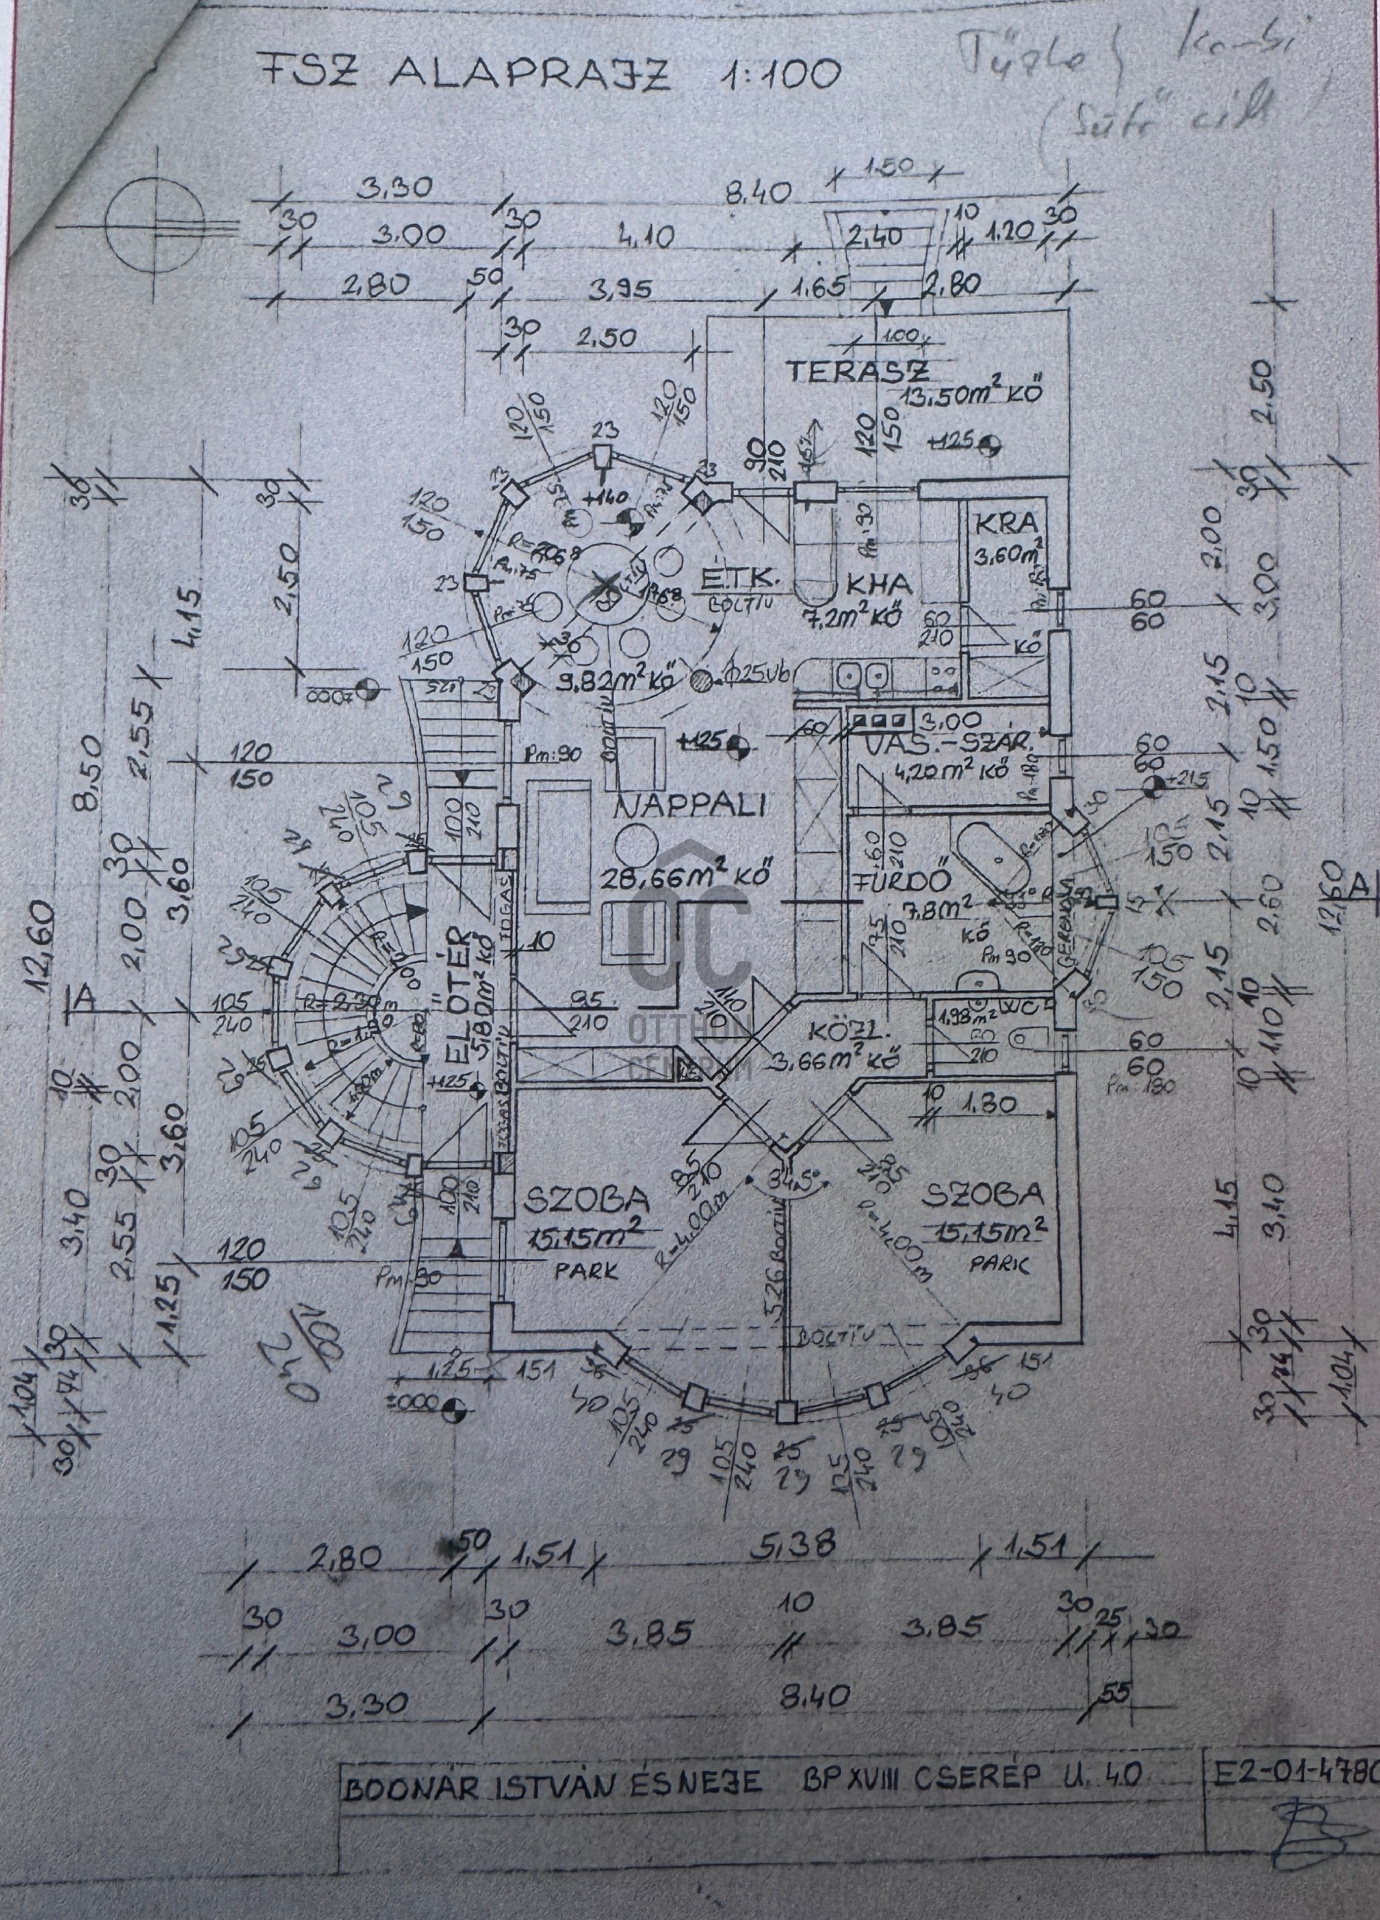 FSZ ALAPRAJZ 1:100
3,30
8.40
1.50
30
3.00
30
4.10
2,40
10
1.20
30
2,80
50
3,95
1.65
2.80
30
2,50
1.00
TERASZ
13,50m² KŐ
+125
120
150
120
150
23
90
210
120
150
+140
120
150
23
ÉTK.
BOLTÍV
KHA
7.2m² KŐ
KRA
3,60m²
KŐ
60
210
60
60
120
150
9,82m² KŐ
Ø25vb
±000
+125
60
3.00
VAS.-SZÁR.
4,20m² KŐ
60
60
+215
120
150
Pm:90
BOLTÍV
NAPPALI
28,66m² KŐ
100
210
FÜRDŐ
7.8m²
KŐ
Pm 90
60
210
75
210
ELŐTÉR
5,80m² KŐ
10
+125
85
210
KÖZL.
3,66m² KŐ
1,98m²
WC
80
210
60
60
Pm:180
10
1.80
OTTHON
CENTRUM
85
210
84,5°
R=4,00m
R=4,00m
526 BOLTÍV
SZOBA
15,15m²
PARK
SZOBA
15,15m²
PARK
100
210
120
150
Pm:90
BOLTÍV
1,25
151
151
±000
40
40
105
240
29
105
240
29
240
29
30
2.50
4,15
8,50
2.55
30
2,00
3,60
12,60
10
2.00
3,60
30
2.55
3.40
1,25
30
74
30
1,04
2.50
30
2.00
3.00
2.15
10
1.50
10
2.15
2.60
12,60
2.15
10
1.10
10
4.15
3.40
30
74
30
1.04
2.80
50
1,51
5,38
1,51
30
3,00
30
3.85
10
3.85
30
25
30
3,30
8.40
55
BODNÁR ISTVÁN ÉS NEJE BP XVIII CSERÉP U. 40
E2-01-4780